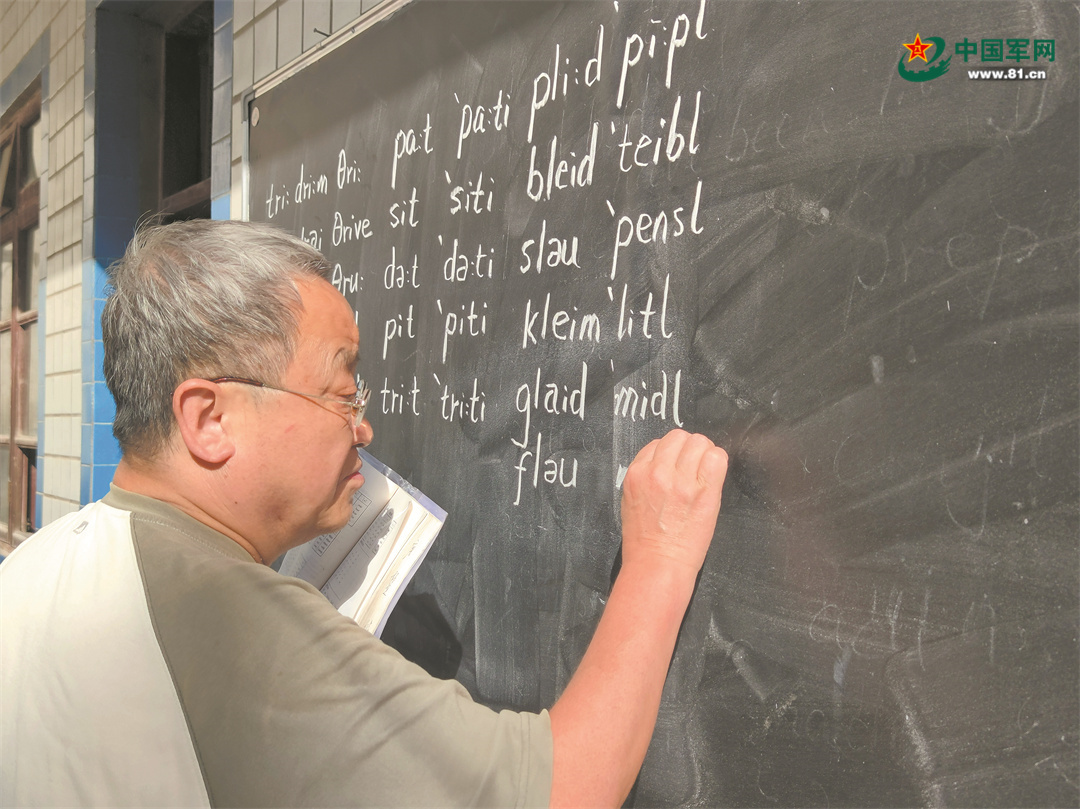 中国军网
www.81.cn
tri: dri:m θri: pa:t ˋpa:ti pli:d ˋpi:pl
θrive sit ˋsiti bleid ˋteibl
θru: də:t ˋdə:ti sləu ˋpensl
pit ˋpiti kleim ˋlitl
tri:t ˋtri:ti glaid ˋmidl
fləu